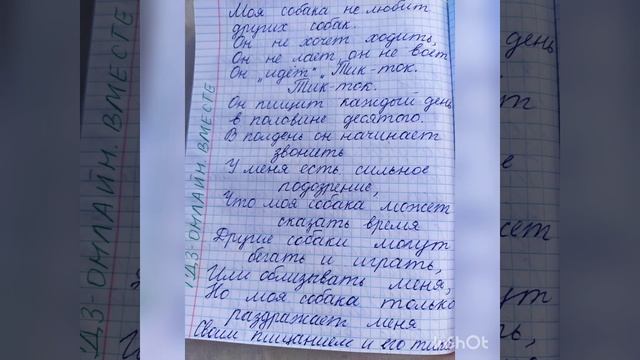 Моя собака не любит
других собак.
Он не хочет ходить,
Он не лает, он не воет
Он „идёт“ „Тик-ток.
Тик-ток.
Он пищит каждый день
в половине десятого.
В полдень он начинает
звонить
У меня есть сильное
подозрение,
Что моя собака может
сказать время
Другие собаки могут
бегать и играть,
Или облизывать меня,
Но моя собака только
раздражает меня
Своим пищанием и его
ГДЗ-ОНЛАЙН. ВМЕСТЕ
день